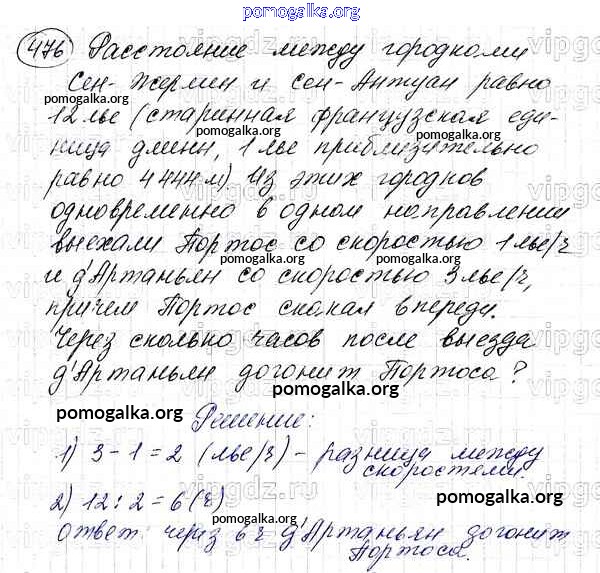 pomogalka.org
476 Расстояние между городками
Сен-Жермен и Сен-Антуан равно
pomogalka.org pomogalka.org
12 лье (старинная французская еди-
ница длины, 1 лье приблизительно
pomogalka.org pomogalka.org
равно 4 444 м) Из этих городков
одновременно в одном направлении
выехали Портос со скоростью 1 лье/ч
и д'Артаньян со скоростью 3 лье/ч,
pomogalka.org pomogalka.org
причем Портос скакал впереди.
Через сколько часов после выезда
д'Артаньян догонит Портоса?
pomogalka.org
pomogalka.org
Решение:
1) 3 - 1 = 2 (лье/ч) - разница между
скоростями.
2) 12 : 2 = 6 (ч)
pomogalka.org
Ответ: через 6 ч д'Артаньян догонит
Портоса.
pomogalka.org